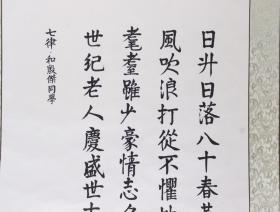 日升日落八十春
風吹浪打從不懼
耄耋雖少豪情志
世纪老人慶盛世
七律 和殷傑同學